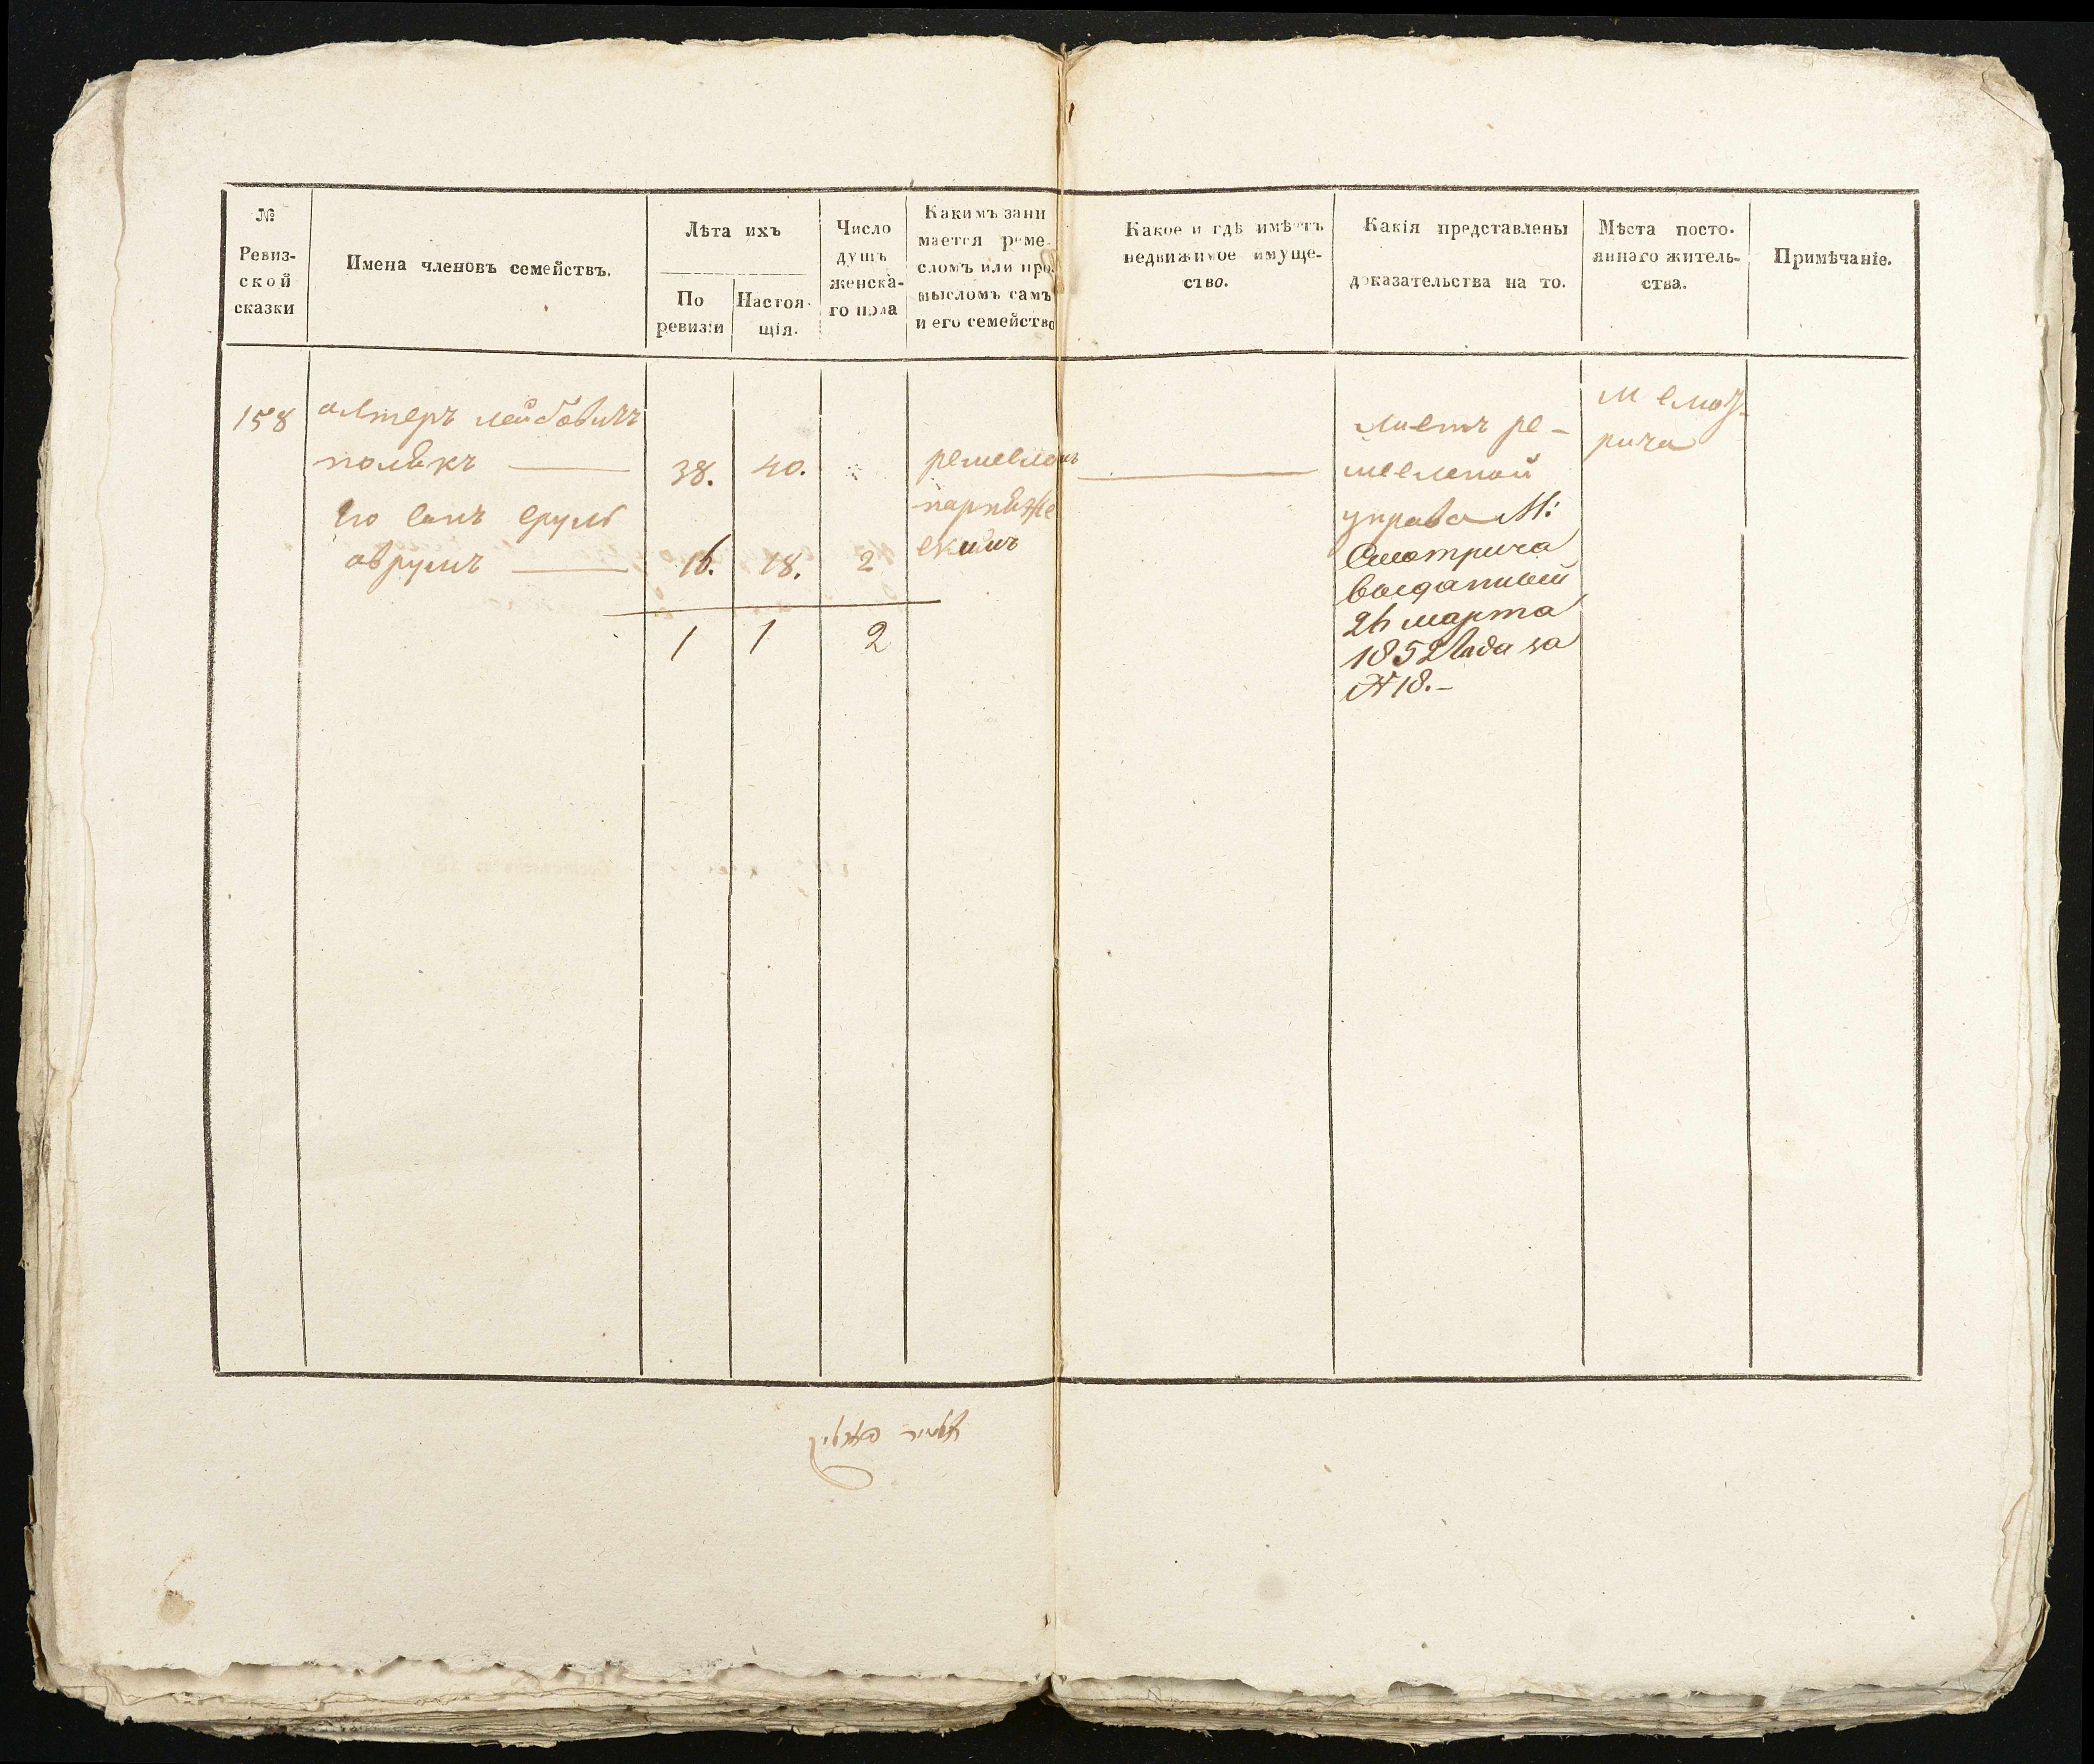 №
Ревиз-
ской
сказки
Имена членовъ семействъ.
Лѣта ихъ
По
ревизіи
Настоя-
щія.
Число
душъ
женска-
го пола
Какимъ зани
мается реме-
сломъ или про-
мысломъ самъ
и его семейство
Какое и гдѣ имѣетъ
недвижимое имуще-
ство.
Какія представлены
доказательства на то.
Мѣста посто-
яннаго житель-
ства.
Примѣчаніе.
158
алтеръ лейбовичъ
полякъ
38.
40.
его сынъ сруль
аврумъ
16.
18.
2
1
1
2
ремесломъ
скимъ
листъ ре-
месленой
управы М:
Смотрича
выданный
26 марта
1852 года за
№ 18.-
м смот-
рича